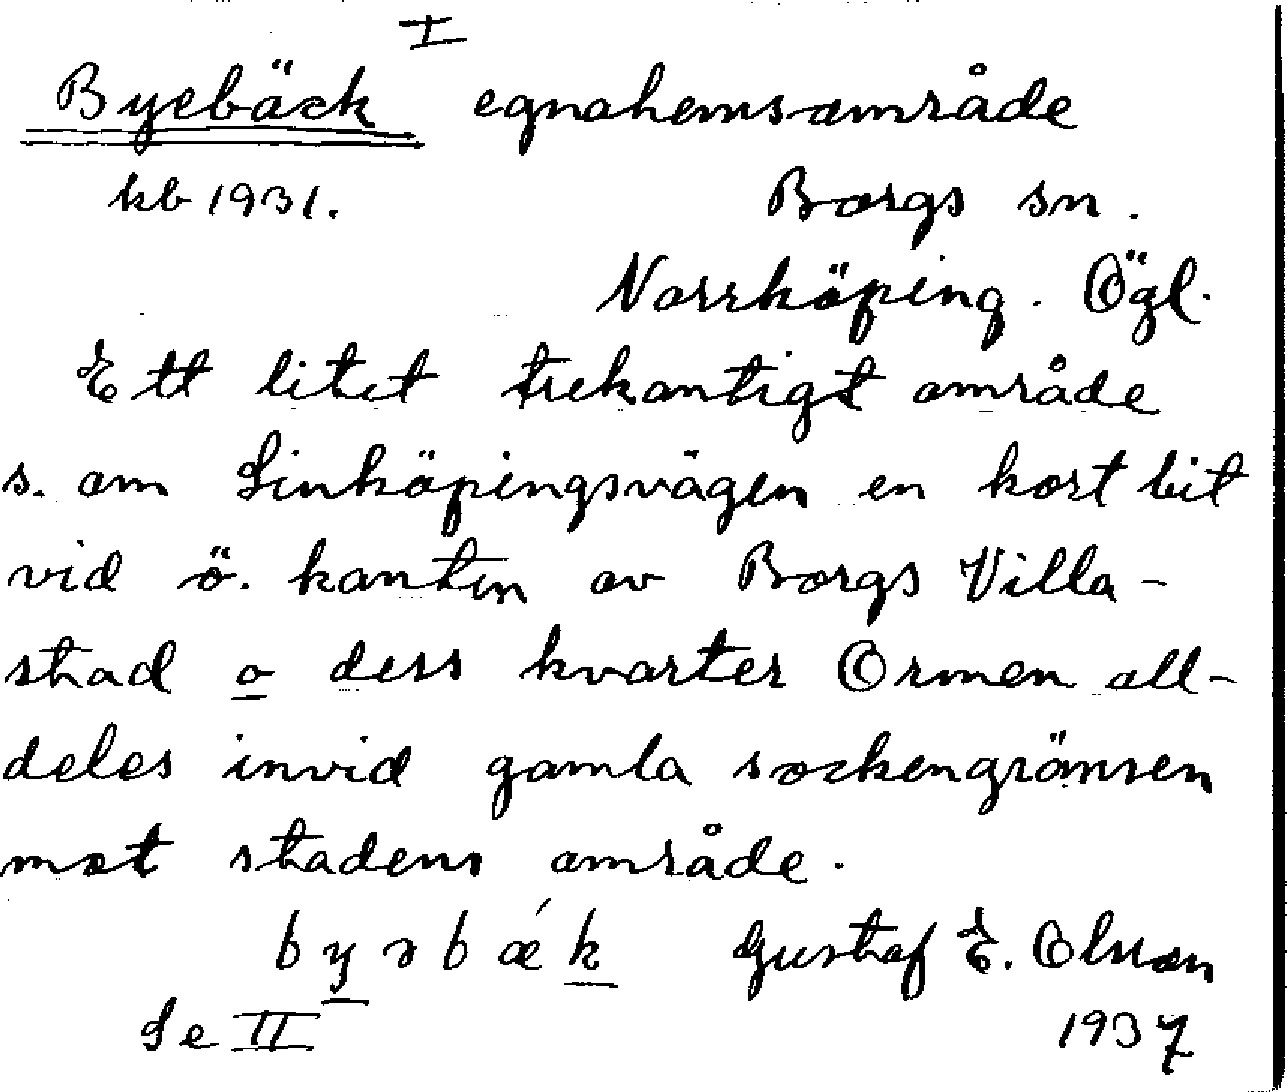 I
Byebäck egnahemsområde
kb 1931. Borgs sn.
Norrköping. Ögl.
Ett litet trekantigt område
s. om Linköpingsvägen en kort bit
vid ö. kanten av Borgs Villa-
stad o dess kvarter Ormen all-
deles invid gamla sockengränsen
mot stadens område.
byəbæ´k Gustaf E. Olsson
Se II 1937